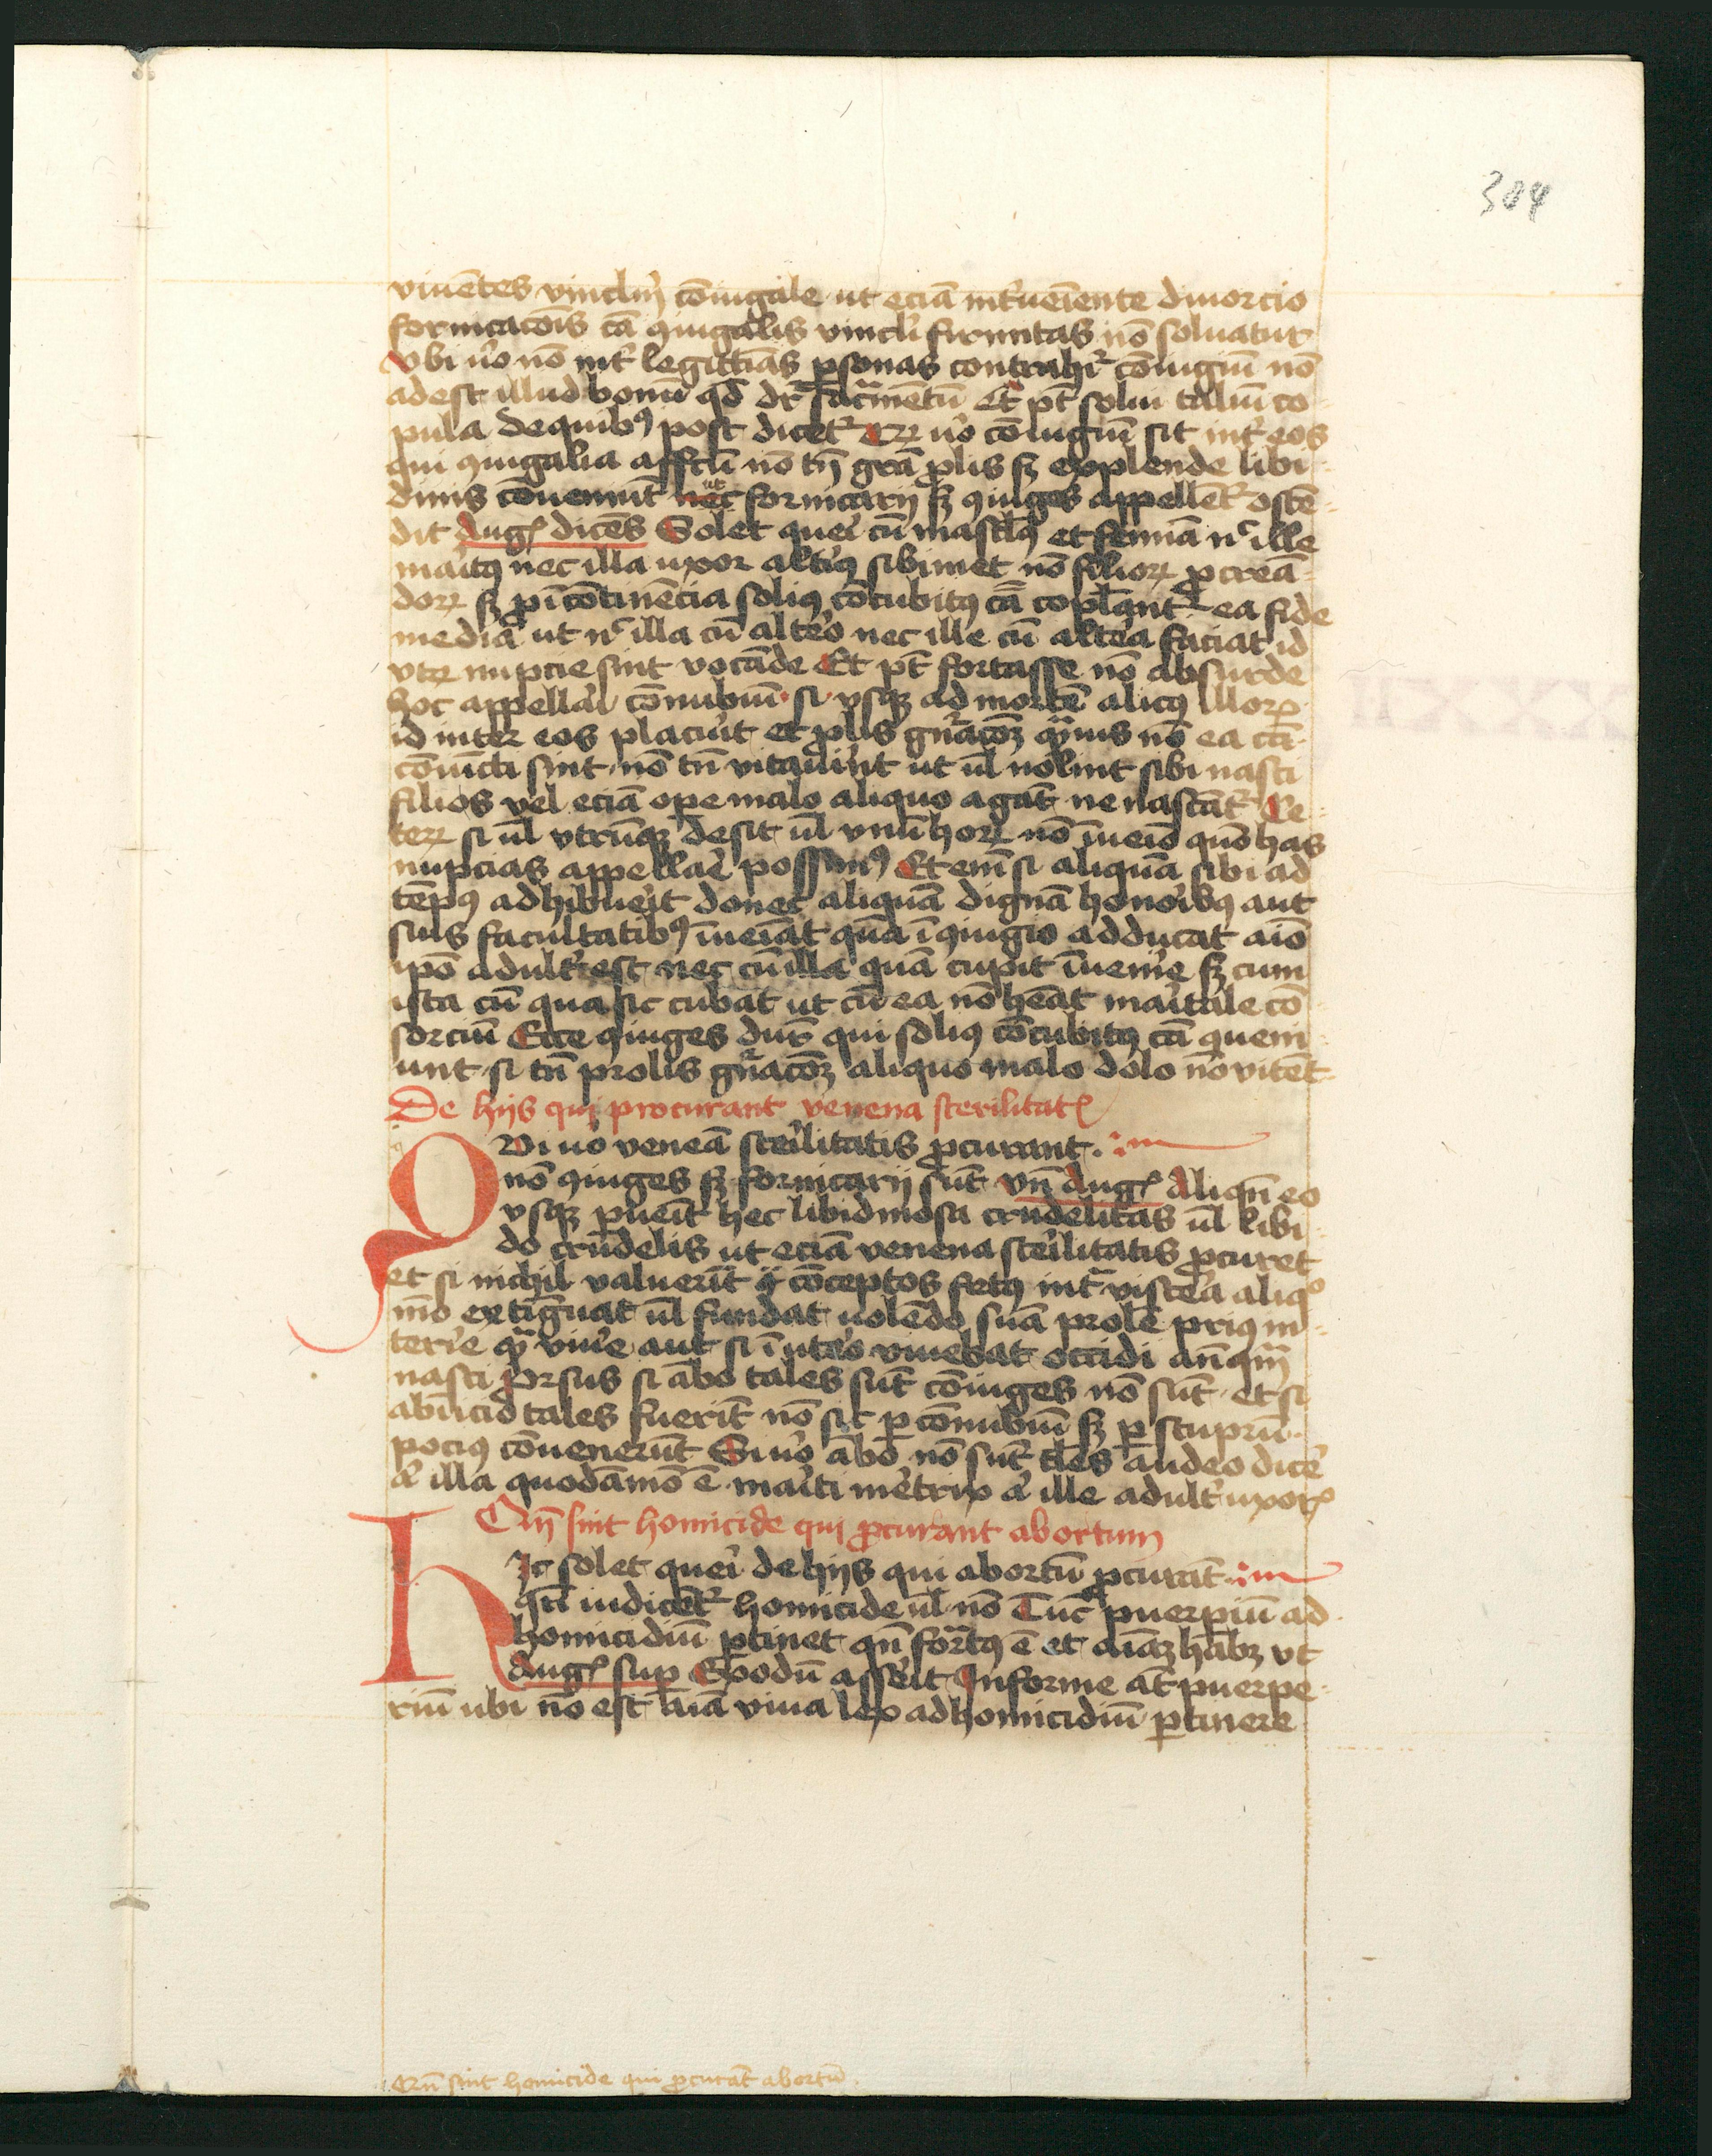 304
viuētes vinclm̄ cōiugale ut eciā int̉ueiente diuorcio
fornicacōīs cā ꝯiugalis vincli̇ firmitas nō soluatur
vbi ūo nō int̉ legittīas ꝑsonas contrahit᷑ cōiugiū nō
adest illud bonū qd̄ dr̄ sac̄mētū Et pt̄ solui taliū co
pula de quibꝰ post dicet᷑ Qꝛ ūo cōiugiū sit int̉ eos
qui ꝯiugalia affcū nō tn̄ grā ꝓlis sꝫ explende libi
dinis cōueniūt ut nec fornicarij sꝫ ꝯiuges appellēt᷑ ostē
dit Augꝰ dicēs Solet queri cū mascl̄ꝰ et femīa nͨ ille
maritꝰ nec illa uxor alteriꝰ sibimet nō filioꝝ ꝓcreā
doꝝ sꝫ ꝓ īcōtinēcia soliꝰ cōcubitꝰ cā copl̄ant᷑ ea fide
media ut nͨ illa cū altero nec ille cū altera faciat id
vtꝝ nupcie sint vocāde Et pt̄ fortasse nō absurde
hoc appellari cōnubiū si vsqꝫ ad mortē alicꝰ illoꝝ
id inter eos placuit et ꝓlis gn̄acōꝫ qᷓuis nō ea cā
cōiūcti sint nō tn̄ vitauerint ut ul̄ nolint sibi nasci
filios vel eciā ope malo aliquo agāt ne nascāt᷑ Ce
teꝝ si ul̄ vtrūqꝫ desit ul̄ vnū hoꝝ nō īueīo quō has
nupcias appellare possimꝰ Etenī si aliquā sibi ad
tēpꝰ adhibuerit donec aliquā dignā honoribꝰ aut
suis facultatibꝰ īueīat quā ī ꝯiugio adducat aīo
ip̄o adult̉ est nec cū illa quā cupit īuenire sꝫ cum
ista cū qua sic cubat ut cū ea nō heāt maritale cō
sorciū Ecce ꝯiuges dn̄r qui soliꝰ cōcubitꝰ cā ꝯueni
unt si tn̄ prolis gn̄acōꝫ aliquo malo dolo nō vitēt
De hijs qui procurant venena sterilitatꝭ
Qvi uo venēa sterilitatis ꝓcurant
nō ꝯiuges sꝫ fornicarij sūt vn̄ Augꝰ Aliqn̄ eo
vsqꝫ ꝓueīt hec libidinosa crudelitas ul̄ libi
do crudelis ut eciā venena sterilitatis ꝓcuret
et si nichil valuerīt conceptos fetꝰ int̉ viscera aliqͦ
mō extīguat ul̄ fundat uolēdo suā prolē priꝰ in
terire qᷓ viuere aut si ī utero viuebat occidi an̄qm̄
nasci Prsus si ābo tales sūt cōiuges nō sūt et si
abinicio tales fuerīt nō sic ꝑ cōnubiū sꝫ ꝑ stuprū
pociꝰ cōuenerūt Si uo ābo nō sūt tl̄es audeo dicere
illa quodāmō ē mariti meretrix ille adult̉ uxorꝭ
Qn̄ sint homicide qui ꝓcurant abortum
Hic solet queri de hijs qui abortū ꝓcurāt
qn̄ iudicēt᷑ homicide ul̄ nō Tūc puerꝑiū ad
homicidiū ꝑtinet qn̄ formatꝰ ē et aīāꝫ habꝫ vt
Augꝰ suꝑ Exodū asserit Informe āt puerpe
riū ubi nō est aīa viua lex ad homicidiū ꝑtinere
Qn̄ sint homicide qui ꝓcurāt abortū